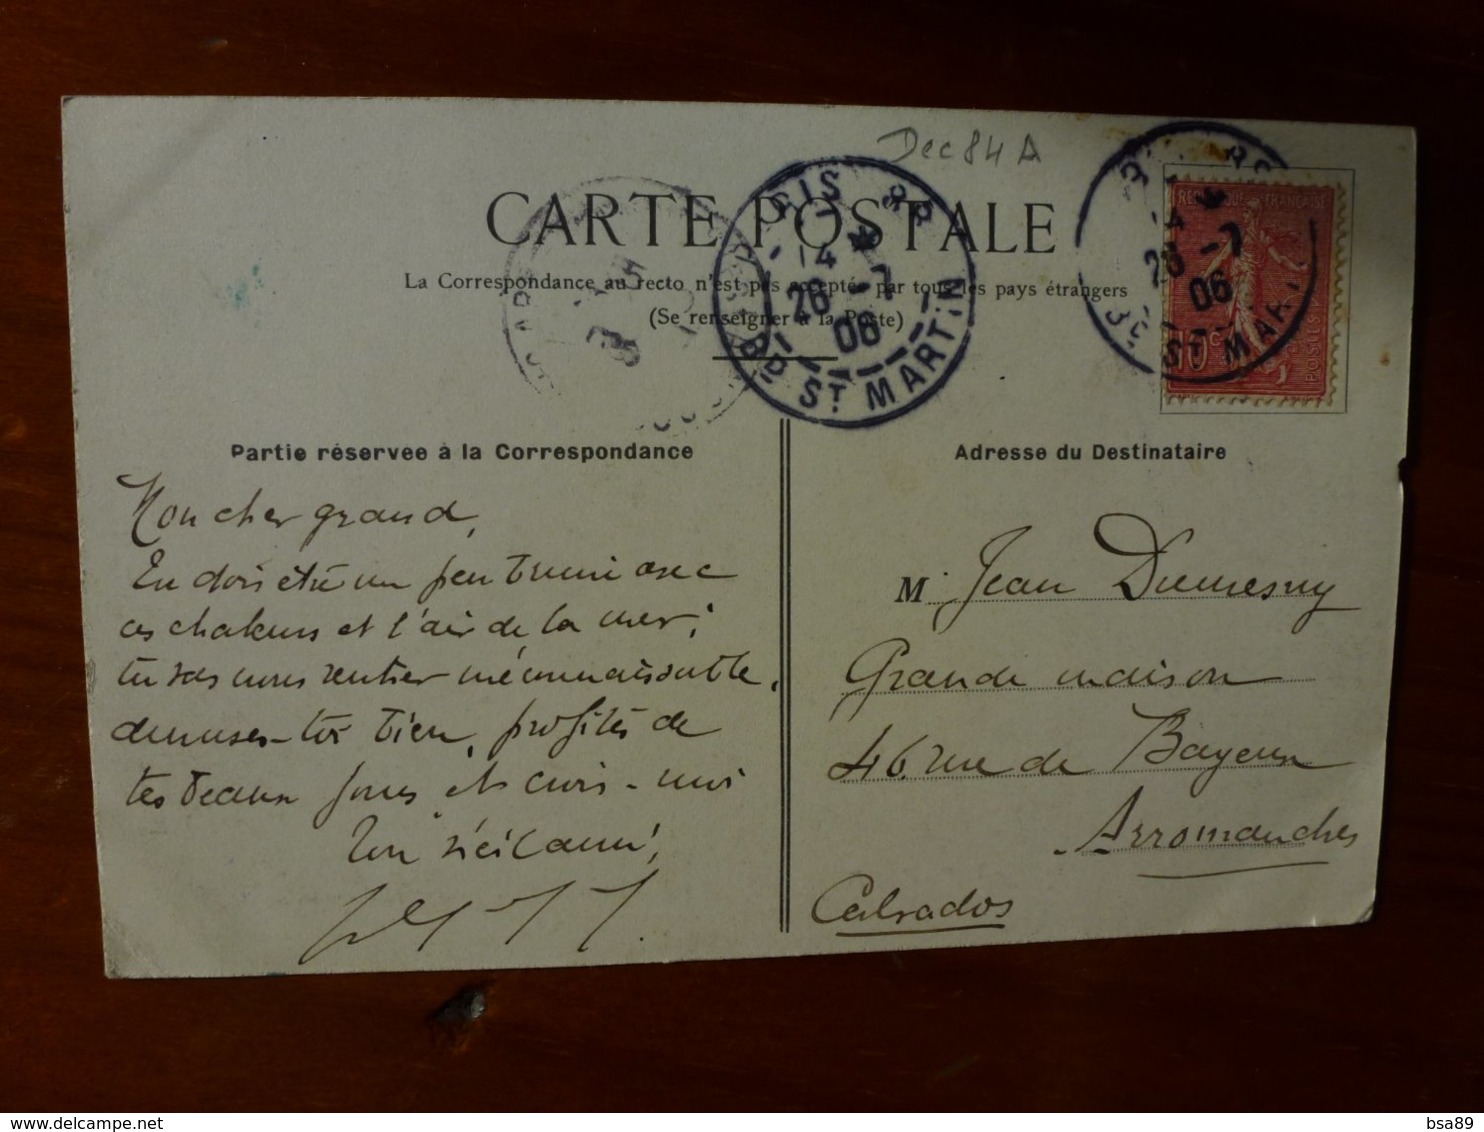 Dec 84 A
CARTE POSTALE
La Correspondance au recto n'est pas acceptée par tous les pays étrangers
(Se renseigner à la Poste)
PARIS 88
14
26 -7
06
BD ST MARTIN
14
26 -7
06
BD ST MARTIN
REPUBLIQUE FRANÇAISE
10 c
POSTES
Partie réservée à la Correspondance
Adresse du Destinataire
Mon cher grand,
En dois être un peu bruni avec
ces chaleurs et l'air de la mer;
tu vas nous rentrer méconnaissable.
amuses-toi bien, profites de
tes beaux jours et crois-moi
Ton vieil ami,
M. Jean Dumesny
Grande maison
46 rue de Bayeux
Arromanches
Calvados
bsa89